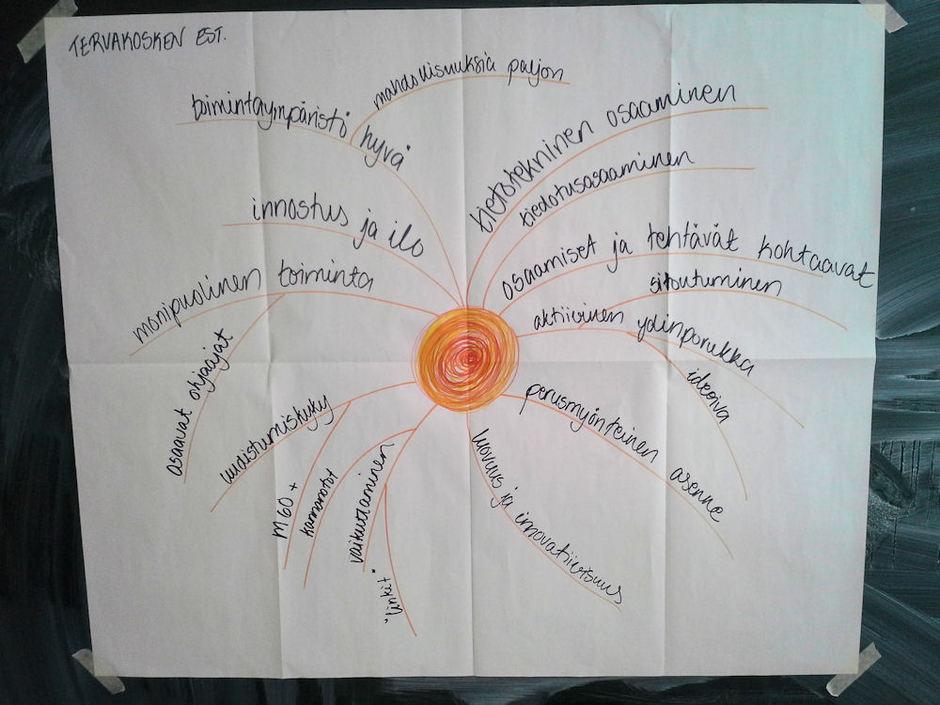 TERVAKOSKEN EST.
mahdollisuuksia paljon
toimintaympäristö hyvä
innostus ja ilo
monipuolinen toiminta
osaavat ohjaajat
uudistumiskyky
M60+
kannanotot
vaikuttaminen
"linkit"
tietotekninen osaaminen
tiedotusosaaminen
osaamiset ja tehtävät kohtaavat
sitoutuminen
aktiivinen ydinporukka
ideoiva
perusmyönteinen asenne
luovuus ja innovatiivisuus